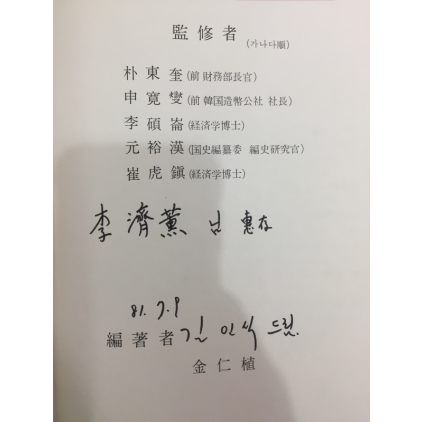 監修者 (가나다順)
朴東奎 (前 財務部長官)
申寬燮 (前 韓国造幣公社 社長)
李碩崙 (経済学博士)
元裕漢 (国史編纂委 編史研究官)
崔虎鎭 (経済学博士)
李濟薰 님 惠存
81. 7. 9
編著者 김인식 드림.
金仁植